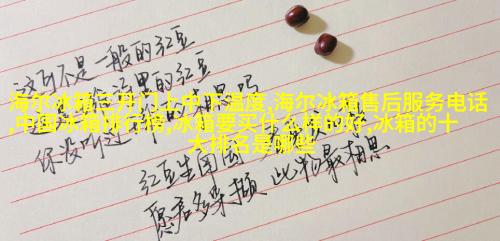 这可不是一般的红豆
里的红豆
海尔冰箱三开门上中下温度,海尔冰箱售后服务电话
,中国冰箱排行榜,冰箱要买什么样的好,冰箱的十
大排名是哪些
你没听过
吗
红豆生南国
愿君多采撷 此物最相思